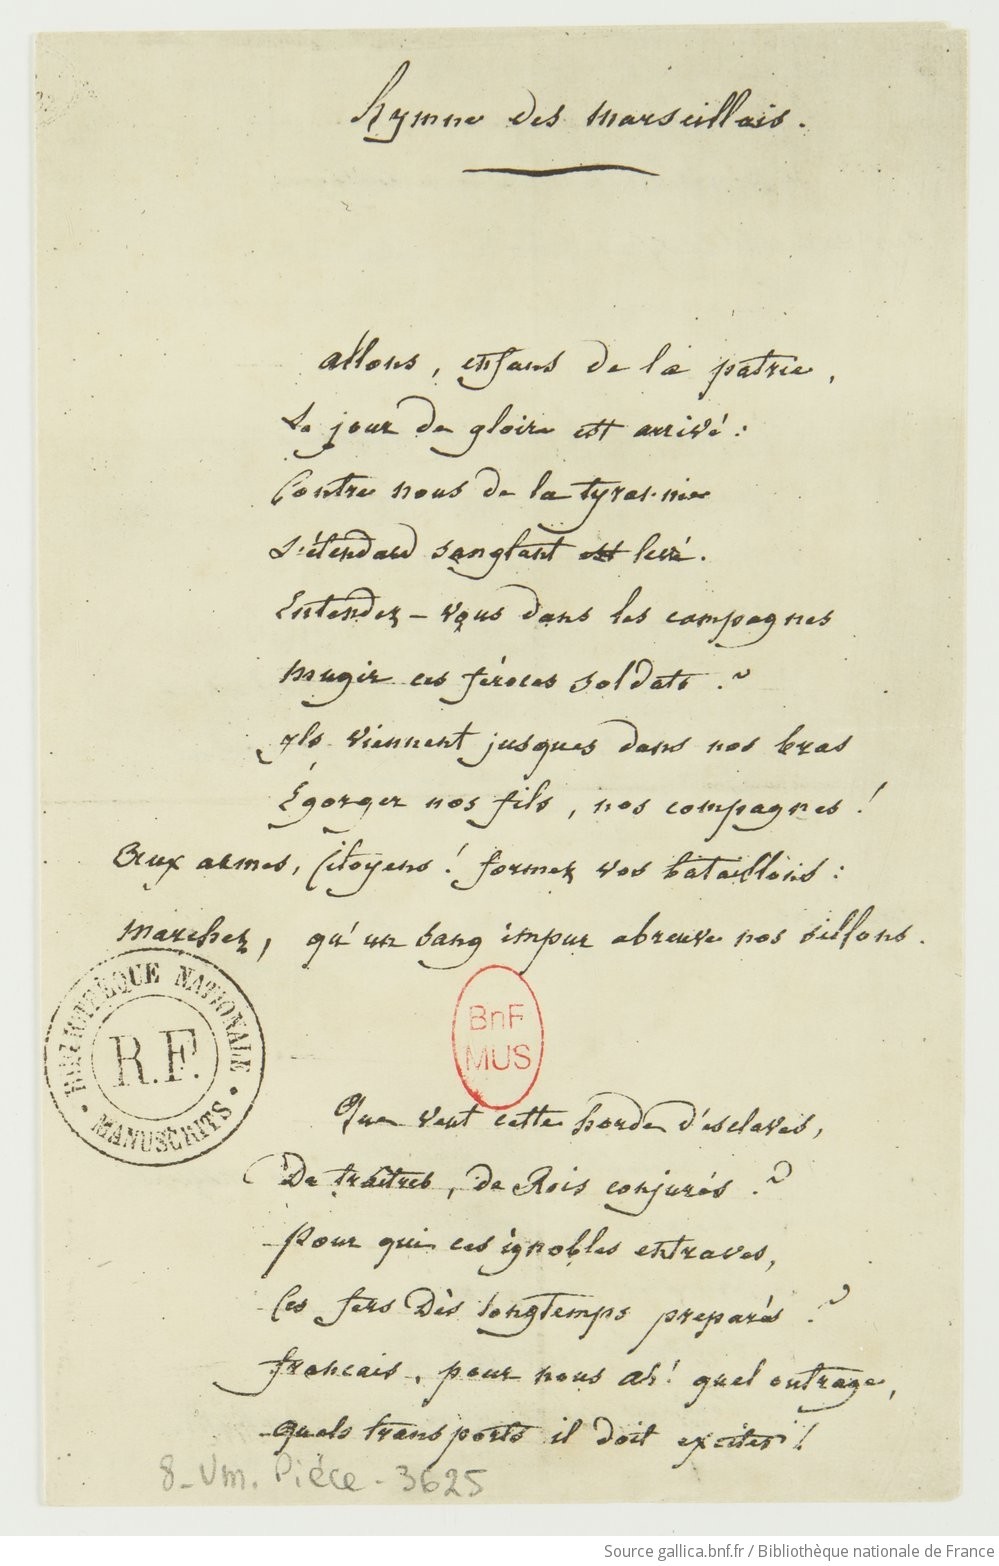 hymne des marseillais.
allons, enfans de la patrie,
Le jour de gloire est arrivé:
Contre nous de la tyrannie
L'étendard sanglant est levé.
Entendez-vous dans les campagnes
mugir ces féroces soldats?
ils viennent jusques dans nos bras
Égorger nos fils, nos compagnes!
aux armes, Citoyens! formez vos bataillons:
marchez, qu'un sang impur abreuve nos sillons.
BIBLIOTHÈQUE NATIONALE
R.F.
MANUSCRITS
BnF
MUS
Que veut cette horde d'esclaves,
De traîtres, de Rois conjurés?
pour qui ces ignobles entraves,
Ces fers Dès longtemps preparés?
francais, pour nous ah! quel outrage,
quels transports il doit exciter!
8-Vm. Pièce-3625
Source gallica.bnf.fr / Bibliothèque nationale de France